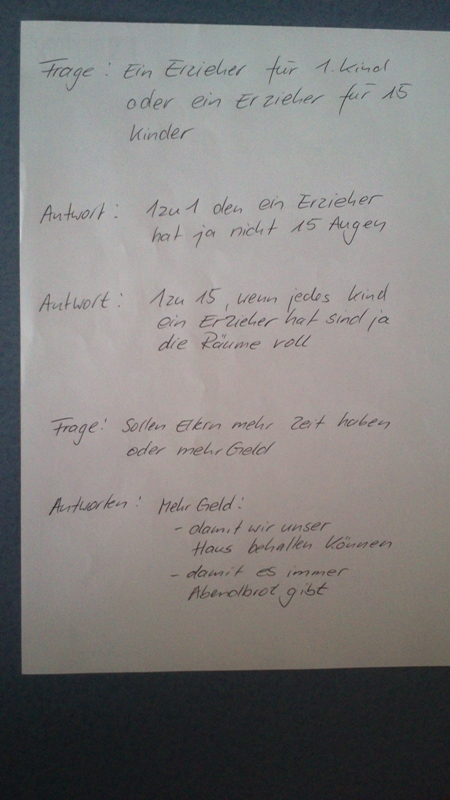 Frage: Ein Erzieher für 1. Kind
oder ein Erzieher für 15
Kinder
Antwort: 1zu1 den ein Erzieher
hat ja nicht 15 Augen
Antwort: 1zu 15, wenn jedes Kind
ein Erzieher hat sind ja
die Räume voll
Frage: Sollen Eltern mehr Zeit haben
oder mehr Geld
Antworten: Mehr Geld:
- damit wir unser
Haus behalten können
- damit es immer
Abendbrot gibt